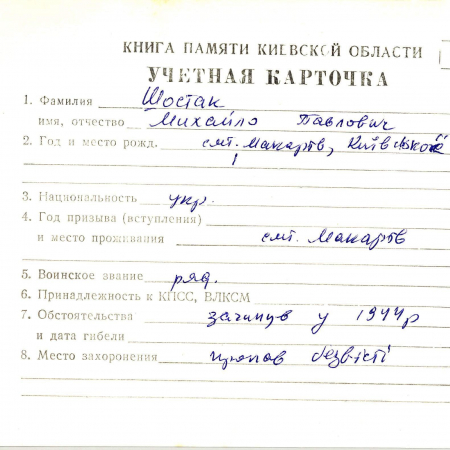 КНИГА ПАМЯТИ КИЕВСКОЙ ОБЛАСТИ
УЧЕТНАЯ КАРТОЧКА
1. Фамилия Шостак
имя, отчество Михайло Павлович
2. Год и место рожд. смт. Макарів, Київської
3. Национальность укр.
4. Год призыва (вступления)
и место проживания смт. Макарів
5. Воинское звание ряд.
6. Принадлежность к КПСС, ВЛКСМ
7. Обстоятельства загинув у 1944р
и дата гибели
8. Место захоронения пропав безвісті